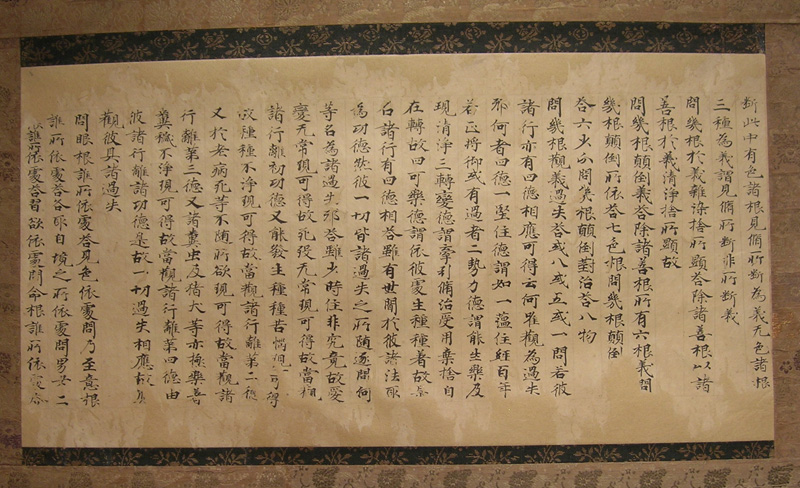 斷此中有色諸根見脩所斷為義无色諸根
三種為義謂見脩所斷非所斷義
問幾根於義雜染捨所顯荅除諸善根以諸
善根於義清淨捨所顯故
問幾根顛倒義荅除諸善根所有六根義問
幾根顛倒所依荅七色根問幾根顛倒
荅六少分問幾根顛倒對治荅八物
問幾根觀義過失荅或八或五或一問若彼
諸行亦有四德相應可得云何唯觀為過失
耶何者四德一堅住德謂如一蘊住經百年
若正將御或有過者二勢力德謂能生樂及
現清淨三轉變德謂牽引脩治受用棄捨自
在轉故四可樂德謂依彼處生種種者故
名諸行有四德相荅雖有世間於彼諸法取
為功德然彼一切皆諸過失之所隨逐問何
等名為諸過失耶荅雖少時住非究竟故愛
變无常現可得故死殁无常現可得故當觀
諸行離初功德又能發生種種苦惱現可得
故種種不淨現可得故當觀諸行離第二德
又於老病死等不隨所欲現可得故當觀諸
行離第三德又諸糞虫及猪犬等亦極樂著
糞穢不淨現可得故當觀諸行離第四德由
彼諸行離諸功德是故一切過失相應故
觀彼具諸過失
問眼根誰所依處荅見色依處問乃至意根
誰所依處荅各取自境之所依處問男女二
誰所依處荅習欲依處問命根誰所依處荅